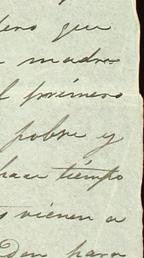 pero que
madre
el primero
pobre y
hace tiempo
s vienen a
Den para